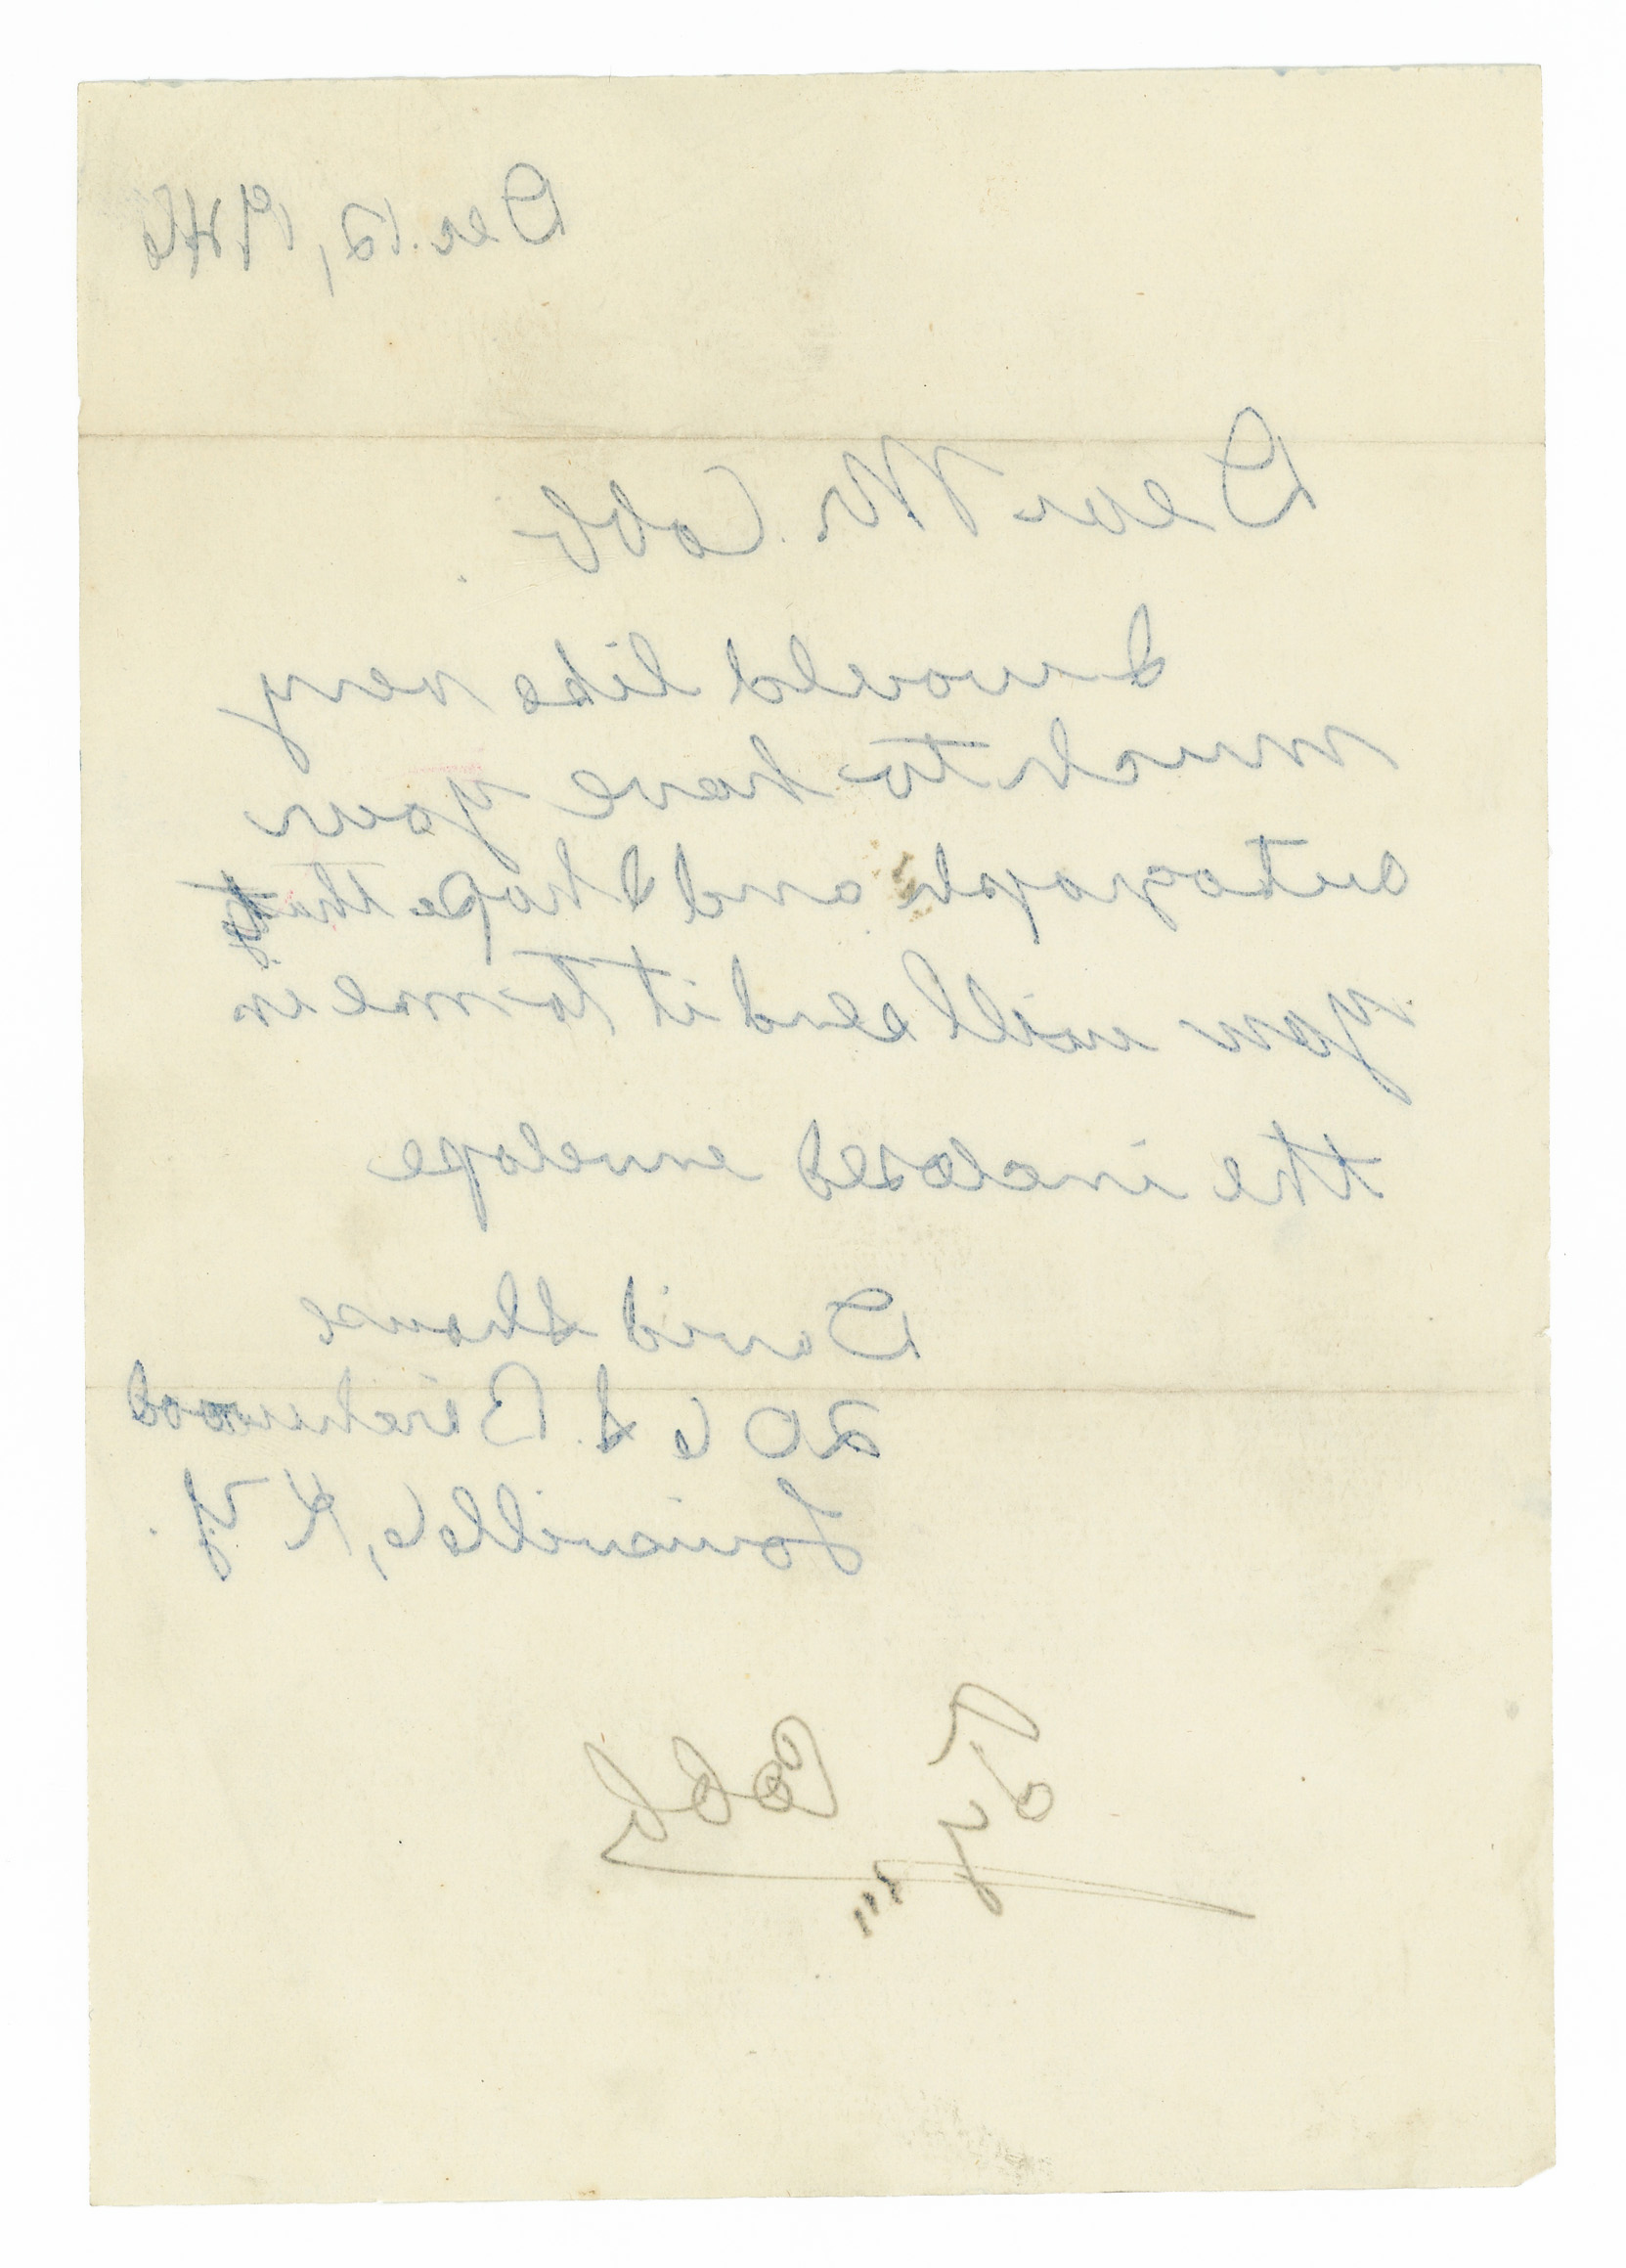 Dec. 12, 1946
Dear Mr. Cobb
I would like very
much to have your
autograph and I hope that
you will send it to me in
the inclosed envelope
David Shouse
Birchwood
Louisville, Ky.
Ty Cobb